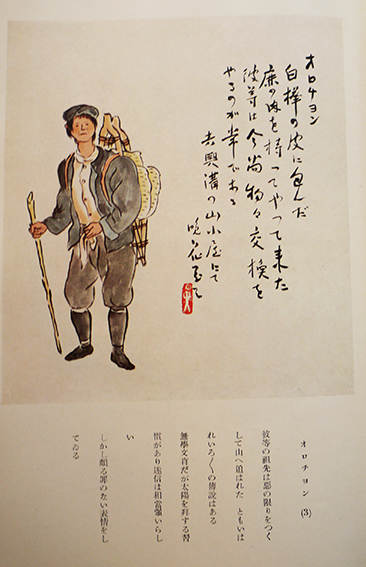 オロチヨン
白樺の皮に包んだ
鹿の肉を持つてやつて来た
彼等は今尚物々交換を
やるのが常である
吉興溝の山小屋にて
晩花画

オロチヨン (3)
彼等の祖先は惡の限りをつく
して山へ追はれた ともいは
れいろ〱の傳説はある
無學文盲だが太陽を拜する習
慣があり迷信は相當強いらし
い
しかし頗る罪のない表情をし
てゐる